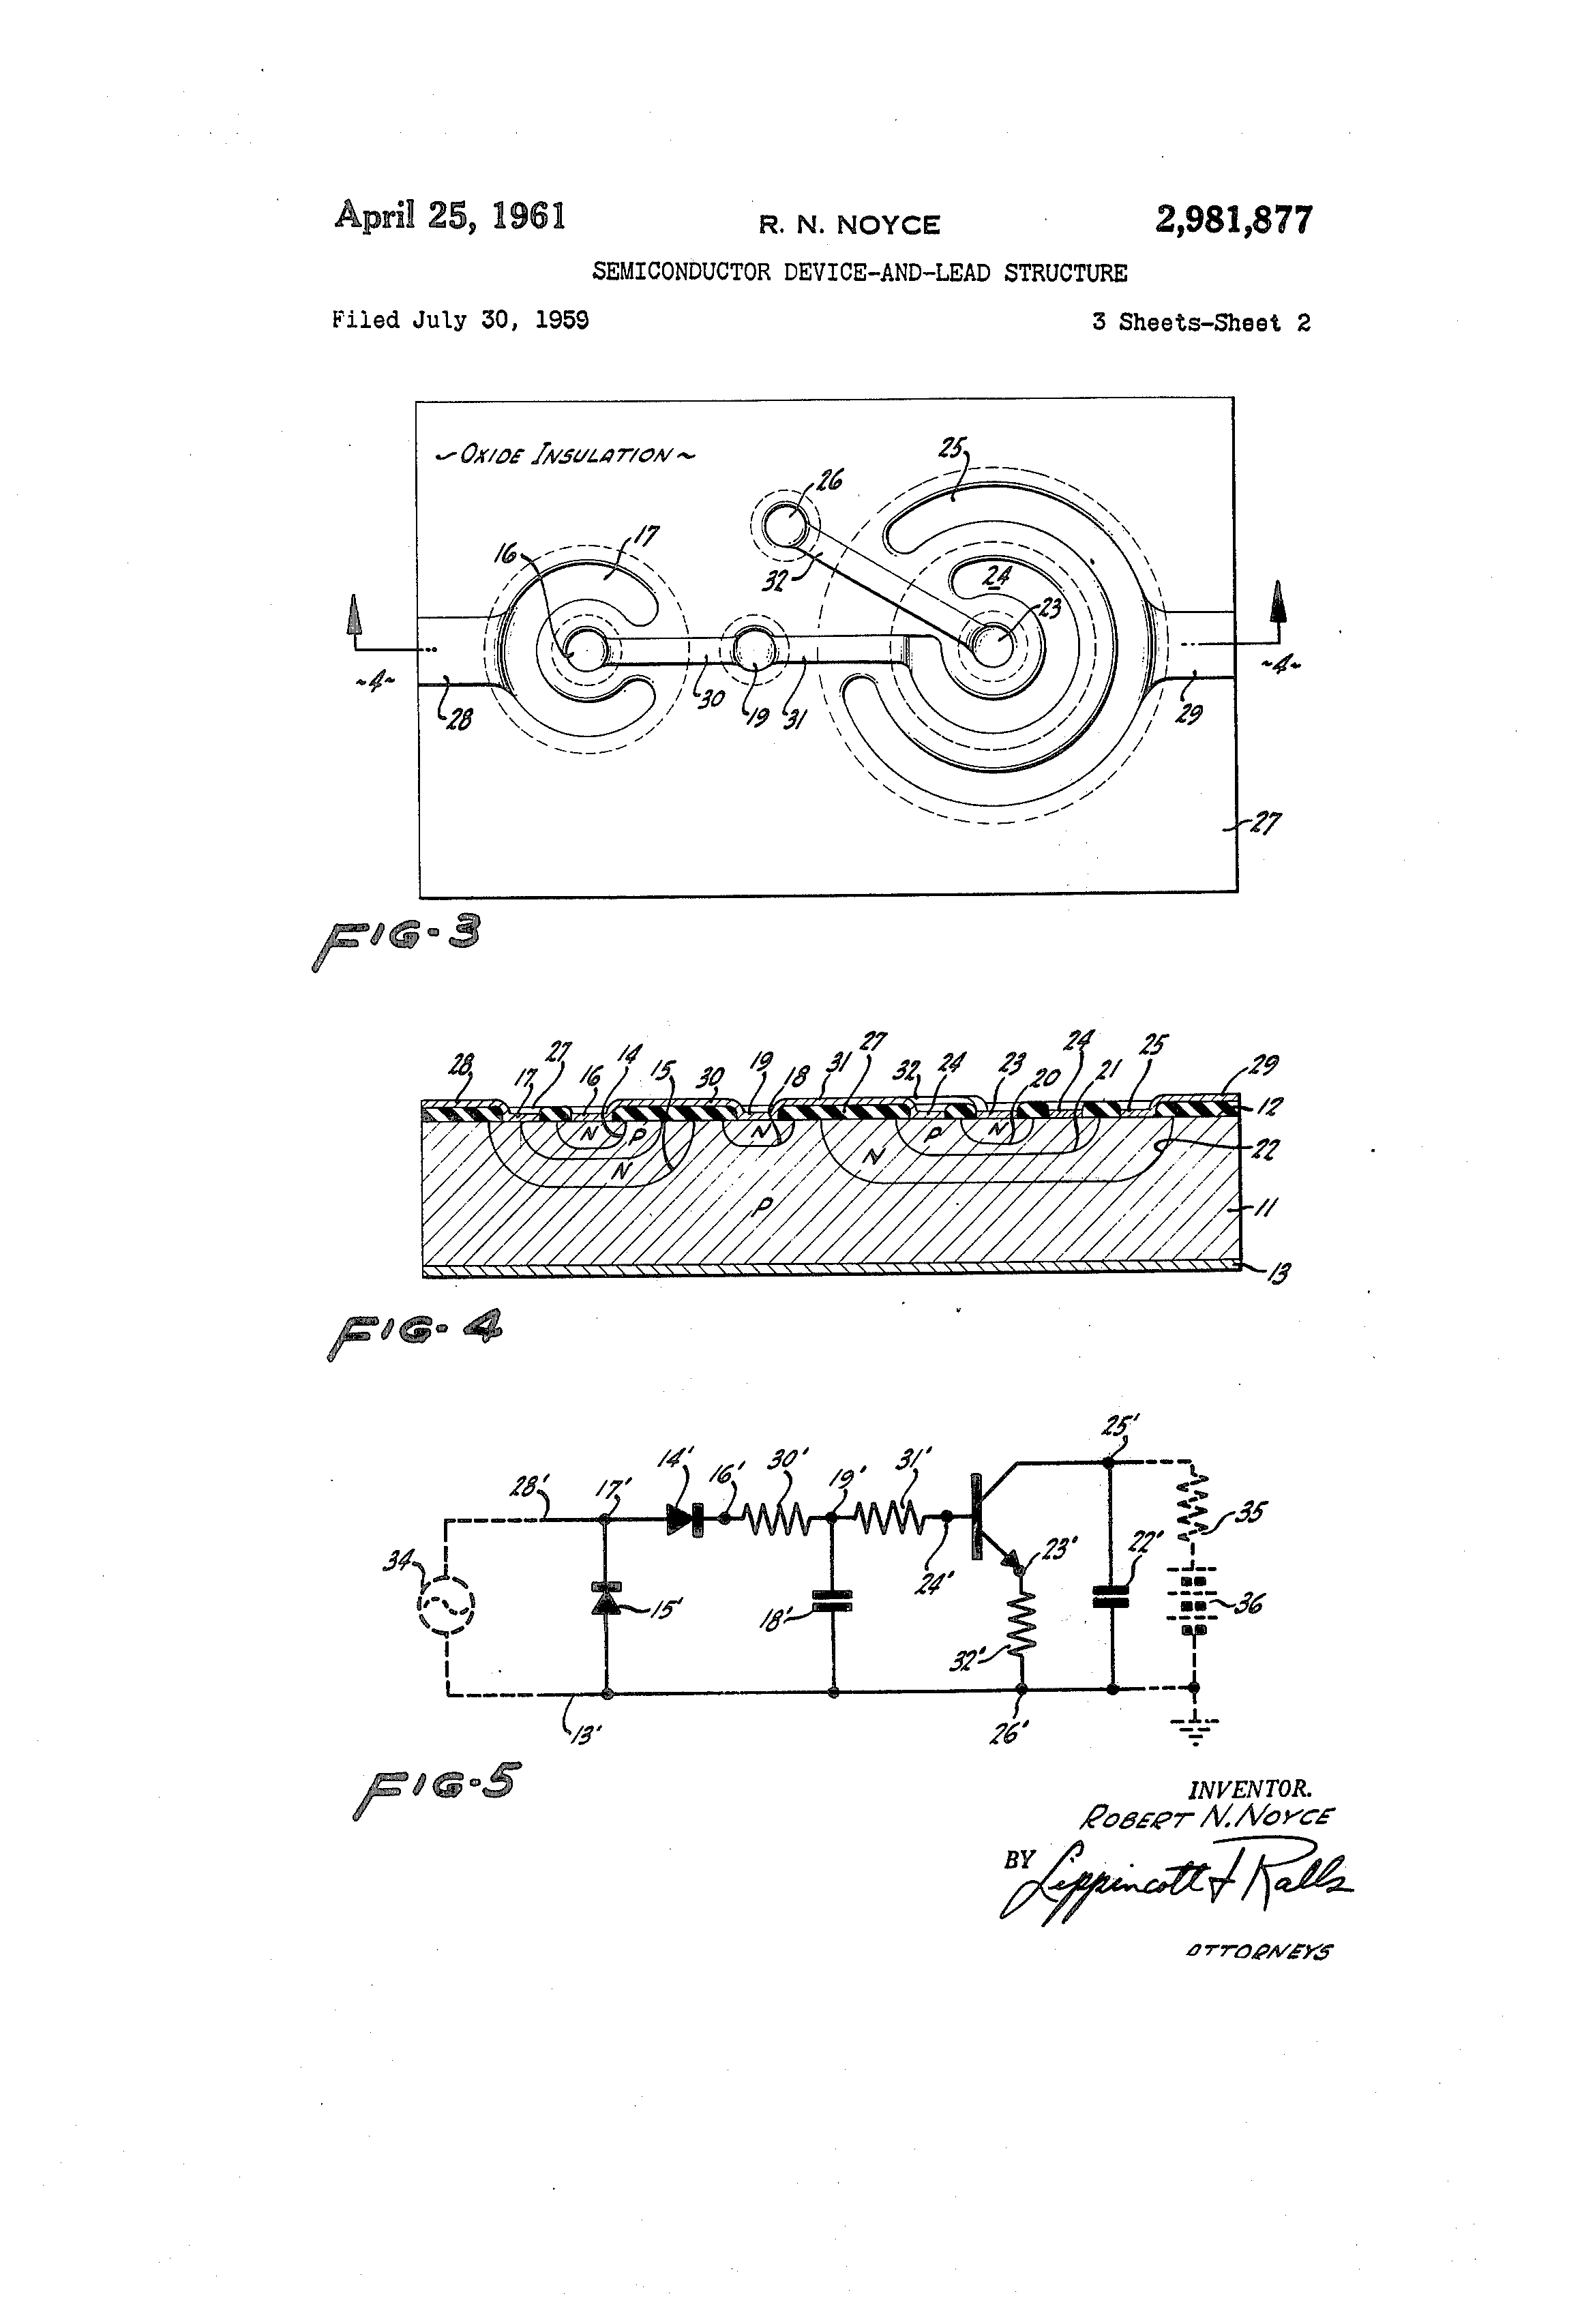 April 25, 1961 R. N. NOYCE 2,981,877
SEMICONDUCTOR DEVICE-AND-LEAD STRUCTURE
Filed July 30, 1959 3 Sheets-Sheet 2
~OXIDE INSULATION~
25
26
17
16
32
24
23
~4~ ~4~
28 30 19 31 29
27
FIG-3
28 17 27 16 14 15 30 19 18 31 27 32 24 23 20 24 21 25 29
12
N P N P N
N N
22
P
11
13
FIG-4
25'
28' 17' 14' 16' 30' 19' 31'
35
34 15' 18' 24' 23' 22' 36
32'
13' 26'
FIG-5
INVENTOR.
ROBERT N. NOYCE
BY Lippincott & Ralls
ATTORNEYS